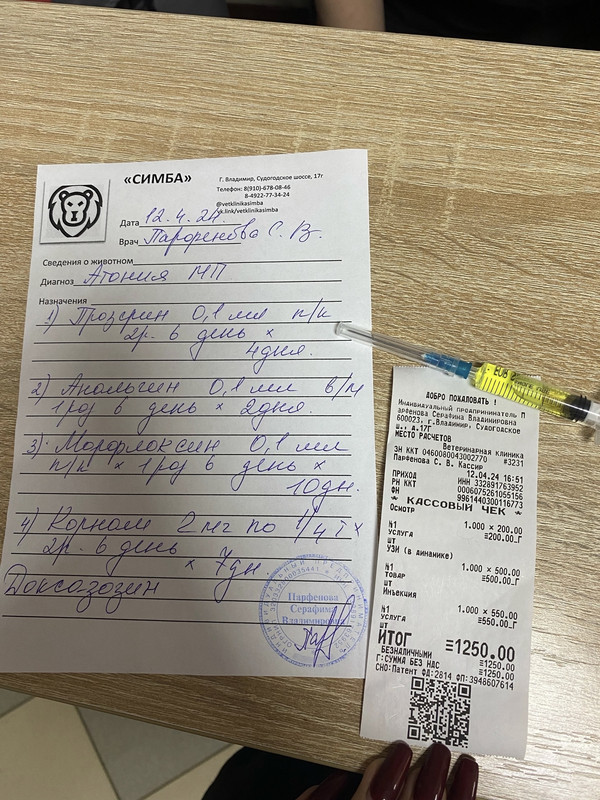 «СИМБА»
Г. Владимир, Судогодское шоссе, 17г
Телефон: 8(910)-678-08-46
8-4922-77-34-24
@vetklinikasimba
vk.link/vetklinikasimba
Дата 12.4.24.
Врач С. В.
Сведения о животном
Диагноз Атония МП
Назначения
1) Прозерин 0,1 мл п/к
2р. в день ×
4дня.
2) Анальгин 0,1 мл в/м
1 раз в день × 2дня.
3) Марфлоксин 0,1 мл
п/к × 1 раз в день ×
10дн.
4) Корнам 2 мг по 1/4 т ×
2р. в день
× 7дн.
Доксазозин
Парфенова
Серафима
Владимировна
ДОБРО ПОЖАЛОВАТЬ !
Индивидуальный предприниматель П
арфенова Серафима Владимировна
600023, г.Владимир, Судогодское
ш., д.17Г
МЕСТО РАСЧЕТОВ
Ветеринарная клиника
ЗН ККТ 0460080043002770 #3231
Парфенова С. В. Кассир
12.04.24 16:51
ПРИХОД
ИНН 332891763952
РН ККТ 0006075261055156
ФН 9961440300116773
* КАССОВЫЙ ЧЕК *
Осмотр
№1 1.000 × 200.00
УСЛУГА ≡200.00_Г
шт
УЗИ (в динамике)
№1 1.000 × 500.00
ТОВАР ≡500.00_Г
шт
Инъекция
№1 1.000 × 550.00
УСЛУГА ≡550.00_Г
шт
ИТОГ ≡1250.00
БЕЗНАЛИЧНЫМИ ≡1250.00
Г:СУММА БЕЗ НДС ≡1250.00
СНО:Патент ФД:2814 ФП:3948607614